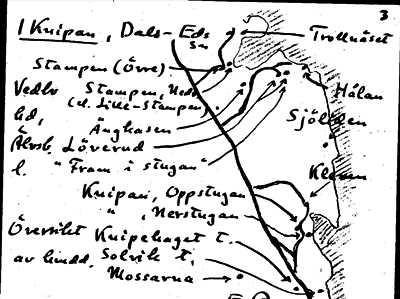 3
I Knipan, Dals-Eds
sn
Trollnäset
Stampen (Övre)
Vedbo Stampen, Nedr
(el. Lille-Stampen)
Hålan
hd, Änghasen
Sjölyden
Älvsb. Löverud
l. "Fram i stugan"
Kleven
Knipan, Oppstugan
" , Nerstugan
Översikt Knipehaget t.
av bindd. Solvik t.
Mossarna